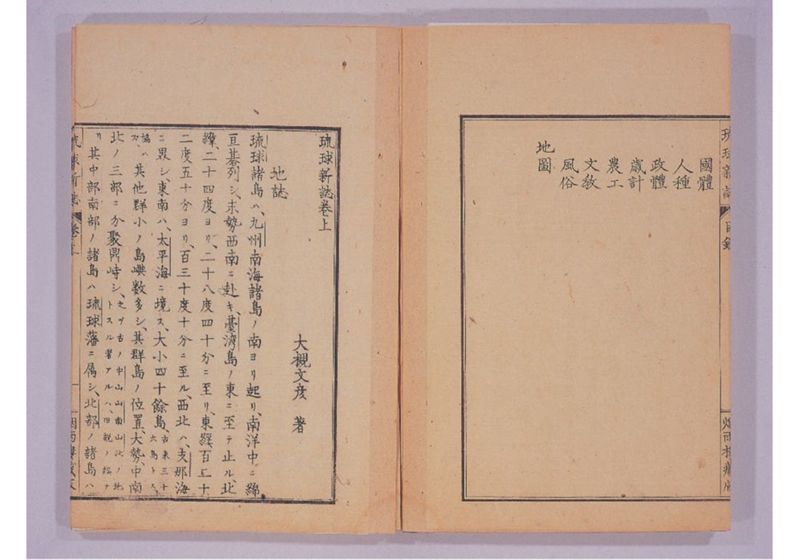 琉球新誌 目錄
國體
人種
政體
歳計
農工
文敎
風俗
地圖
琉球新誌卷上
大槻文彦 著
地誌
琉球諸島ハ、九州南海諸島ノ南ヨリ起リ、南洋中ニ綿
亘碁列シ、末勢西南ニ赴キ、臺灣島ノ東ニ至テ止ル、北
緯、二十四度ヨリ、二十八度四十分ニ至リ、東經百二十
二度五十分ヨリ、百三十度十分ニ至ル、西北ハ、支那海
ニ界シ、東南ハ、太平海ニ境ス、大小四十餘島、古來三十六島トス
ハ 其他群小ノ島嶼數多シ、其群島ノ位置、大勢中南
北ノ三部ニ分聚鼎峙シ、之ヲ古ノ中山山南山北ノ地トスル者アルハ、
リ 其中部南部ノ諸島ハ琉球藩ニ屬シ、北部ノ諸島ハ
琉球新誌 一